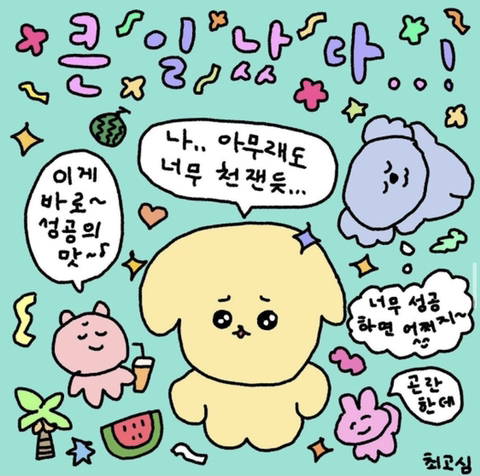 큰일났다..!
나.. 아무래도
너무 천잰듯...
이게
바로~
성공의
맛~♪
너무 성공
하면 어쩌지~
곤란
한데
최고심